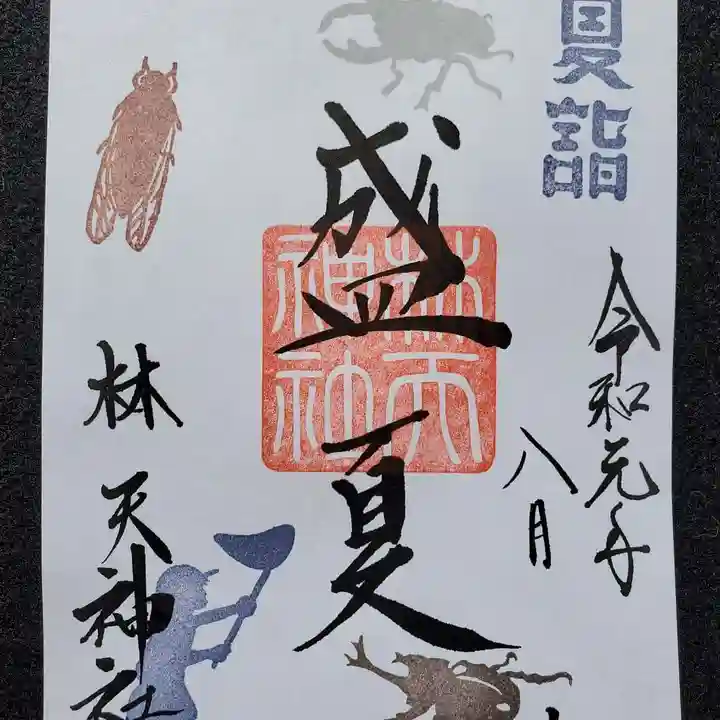 夏詣
令和元年
八月
盛夏
林天神社
林 天神社